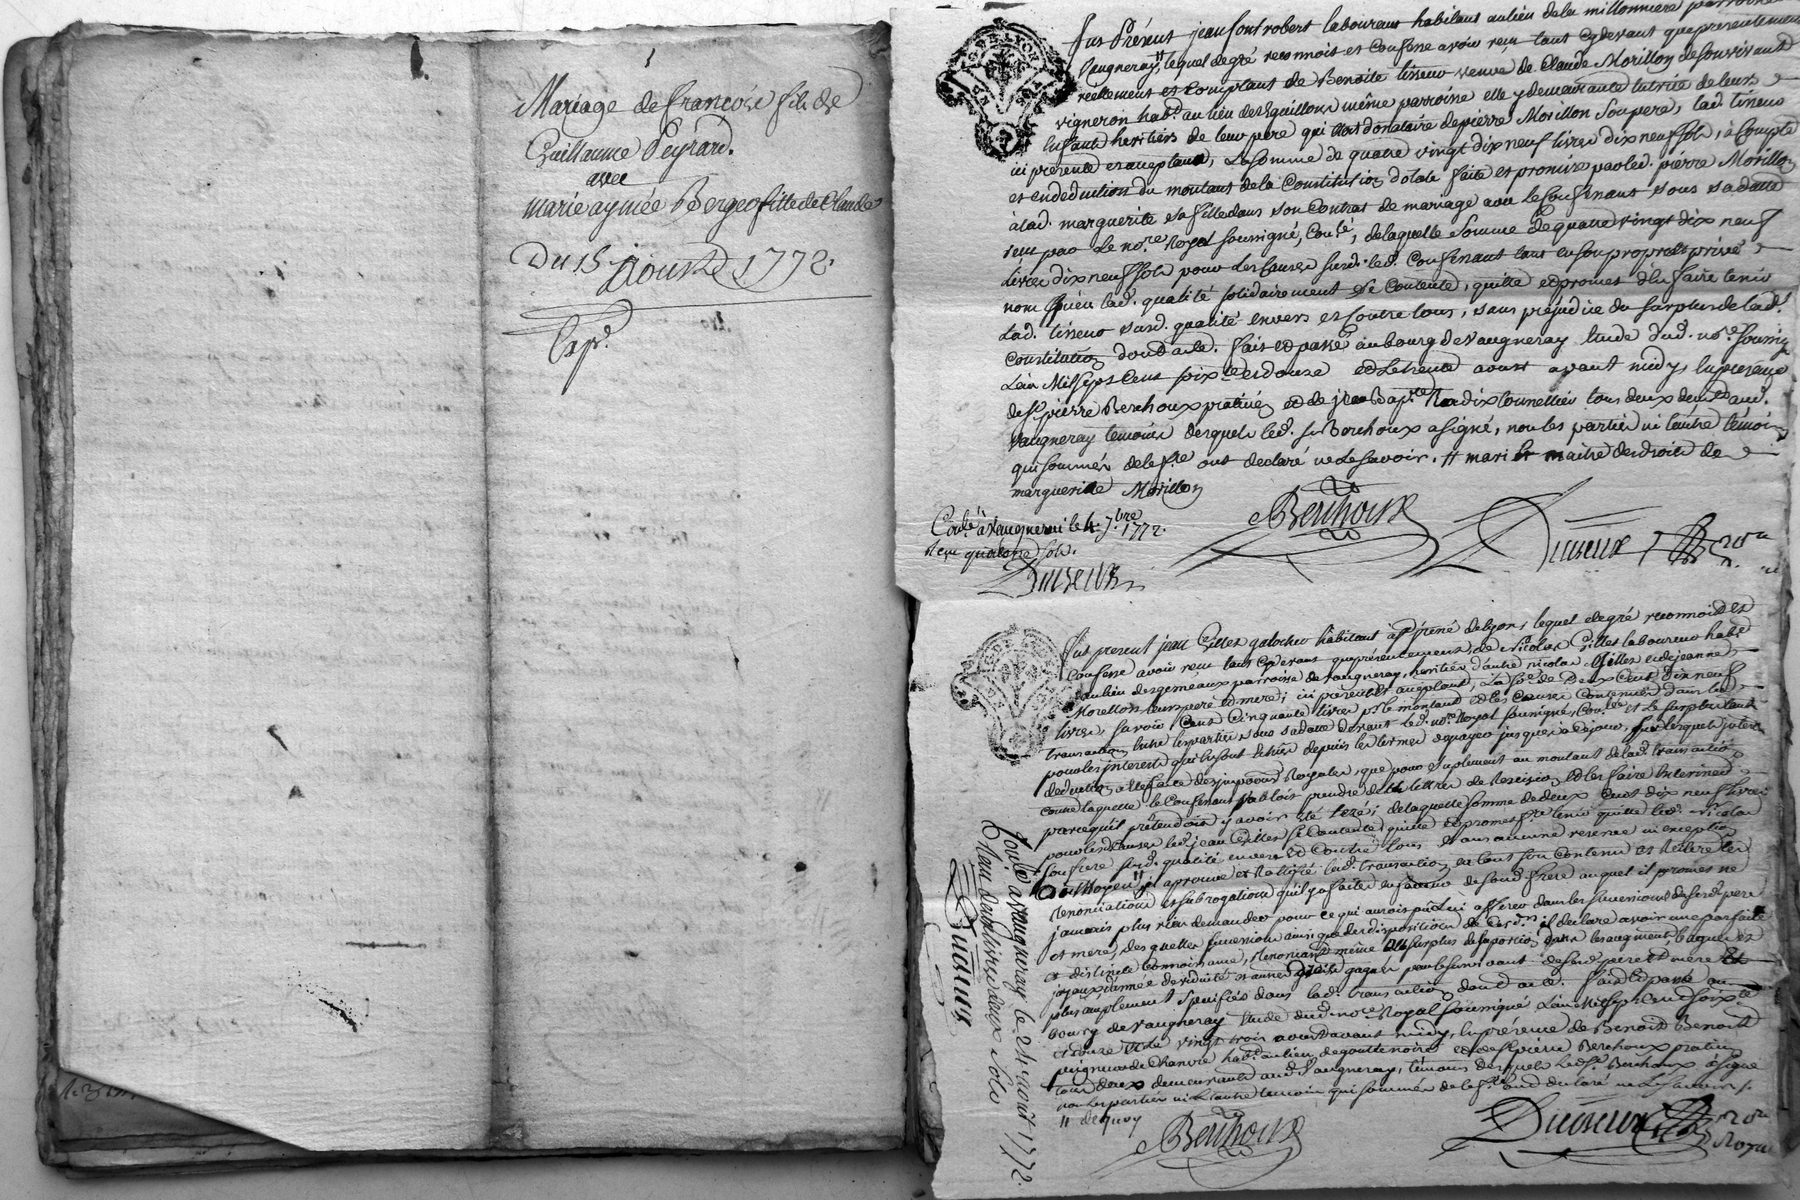 Mariage de françois fils de
Guillaume Peyrard.
avec
marie aymée Berger fille de Claude
Du 15 Aoust 1772.
Exp.
fut Présent jean font robert laboureur habitant au lieu de la millonniere parroisse
Vaugneray, lequel de gré reconnoit et confesse avoir reçu tant cy devant que presentement
reellement et comptant de Benoite tisseur veuve de Claude Morillon de son vivant
vigneron habt. au lieu des Eguillons même parroisse elle y demeurante tutrice de leurs
enfants heritiers de leur pere qui etoit donataire de pierre Morillon son pere, lad. tisseur
ici presente et acceptante, La somme de quatre vingt dix neuf livres dix neuf sols, à Compte
et en deduction du montant de la Constitution dotale faite et promise par led. pierre Morillon
à lad. marguerite sa fille dans son Contrat de mariage avec le Confessant sous sa datte
reçu par le nore. Royal soussigné, Conlé, de laquelle somme de quatre vingt dix neuf
Livres dix neuf sols pour les causes susd. led. Confessant tant en son propre et privé
nom qu'en lad. qualité solidairement se contente, quitte et promet de faire tenir
Lad. tisseur susd. qualité envers et contre tous, sans préjudice du surplus de lad.
Constitution dont acte. fait et passé au bourg de Vaugneray Etude dud. nore. soussigné
L'an Mil sept cent soixte. et douze et le trente aoust avant midy, en presence
de sr. pierre Berchoux praticien et de jean Bapte. Radix tonnellier tous deux demt. aud.
Vaugneray temoins desquels led. sr. Berchoux a signé, non les parties ni l'autre témoin
qui sommés de le fre. ont declaré ne le savoir. // mari et maitre des droits de
marguerite Morillon
Berchoux
Conlé à Vaugneray le 4. 7bre 1772.
Reçu quatorze sols.
fut present jean Gilles galocher habitant à St. irené de Lyon, lequel de gré reconnoit et
Confesse avoir reçu tant cy devant que présentement de Nicolas Gilles laboureur habt.
au lieu des gemeaux parroisse de Vaugneray, heritier d'autre nicolas Gilles et de jeanne
Morellon leurs pere et mere; ici present et acceptant, la se. de Deux Cent dix neuf
livres, savoir Cent Cinquante livres pr. le montant et les causes contenues dans la
transaction entre les parties sous sa datte devant led. nore. Royal soussigné, Conlée et le surplus tant
pour les interets qui lui sont dus depuis les termes à payer jusques à ce jour, sur lesquels interets
deduction a été faite des impositions Royales, que pour suplement au montant de lad. transaction
contre laquelle le Confessant vouloit prendre des lettres de Rescision et les faire Interiner
parce qu'il prétendoit y avoir été lezé; de laquelle somme de deux Cent dix neuf livres
pour les d. causes led. jean Gilles se contente, quitte et promet fre. tenir quitte led. Nicolas
son frere susd. qualité envers et contre tous et sans aucune reserve ni exception
au Moyen // il aprouve et Ratifie lad. transaction et tout son contenu et reitere les
renonciations et subrogations qu'il y a faites en faveur de son d. frere auquel il promet ne
jamais plus rien demander pour ce qui auroit pû lui afferer dans les successions de ses d. pere
et mere, desquelles successions ainsi que des dispositions de ces d. il declare avoir une parfaite
et distincte connoissance, Renonçant même au surplus de sa portion dans les augment, bagues et
joyaux, année de viduité et autres droits gagnés par le survivant de ses d. pere et mere et
plus amplement specifiés dans lad. transaction dont acte. fait et passé au
bourg de Vaugneray Etude dud. nore. Royal soussigné L'an Mil sept cent soixte.
et douze et le vingt trois aoust avant midy, en présence de Benoit Benoit
peigneur de Chanvre habt. au lieu de goutte noire et de sr. pierre Berchoux praticien
tous deux demeurants aud. Vaugneray, témoins desquels led. sr. Berchoux a signé
non les parties ni l'autre temoin qui sommés de le fre. ont declaré ne le savoir ./.
// de quoy
Berchoux
Conlé à Vaugneray le 24 août 1772.